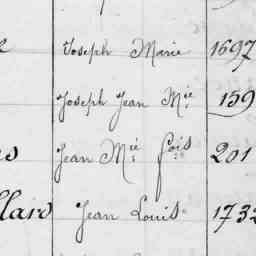 Joseph Marie 1697
Joseph Jean Mie 159
Jean Mie fois 201
llard Jean Louis 1732